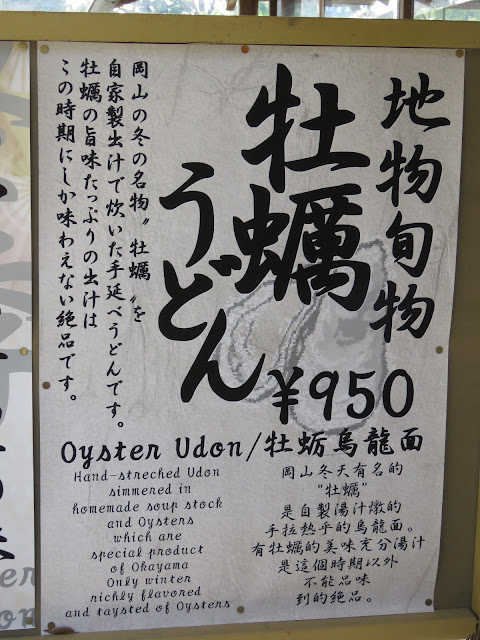 地物旬物
牡蠣
うどん
¥950
岡山の冬の名物〝牡蠣〟を
自家製出汁で炊いた手延べうどんです。
牡蠣の旨味たっぷりの出汁は
この時期にしか味わえない絶品です。
Oyster Udon/牡蛎烏龍面
Hand-streched Udon
simmered in
homemade soup stock
and Oysters
which are
special product
of Okayama
Only winter
richly flavored
and taysted of Oysters
岡山冬天有名的
“牡蠣”
是自製湯汁燉的
手拉熱乎的烏龍面。
有牡蠣的美味充分湯汁
是這個時期以外
不能品味
到的絶品。